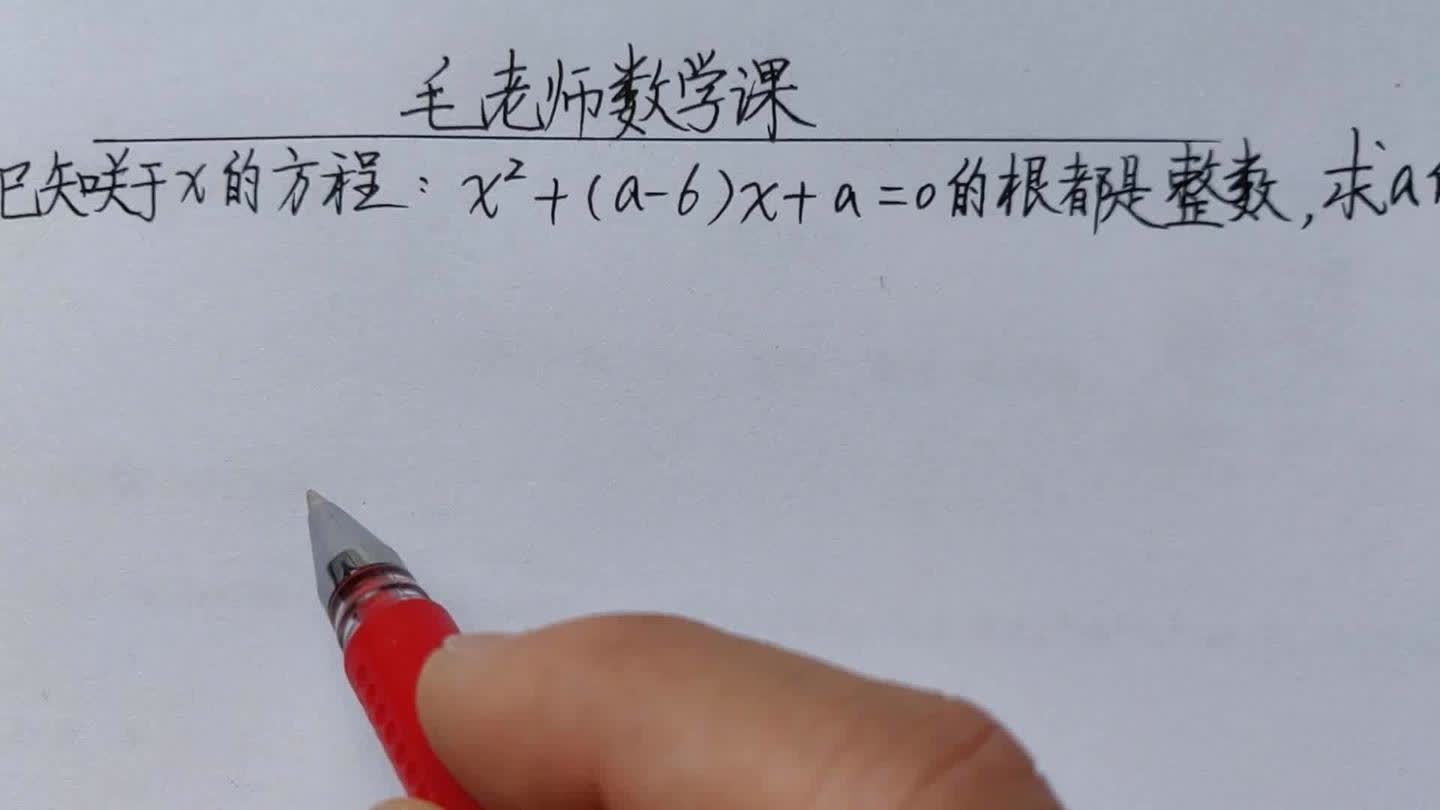 毛老师数学课
已知关于x的方程：x²+(a-6)x+a=0的根都是整数，求a